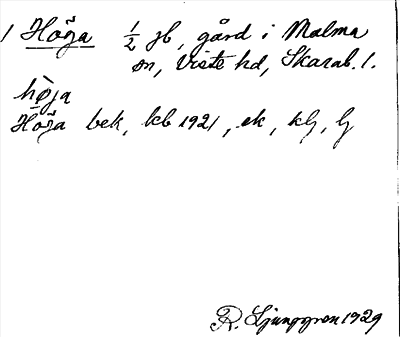 1 Höga 1/2 jb, gård i Malma
sn, Viste hd, Skarab. l.
hòja
Höga bek, kb 1921, ek, klj, lj
R. Ljunggren 1929